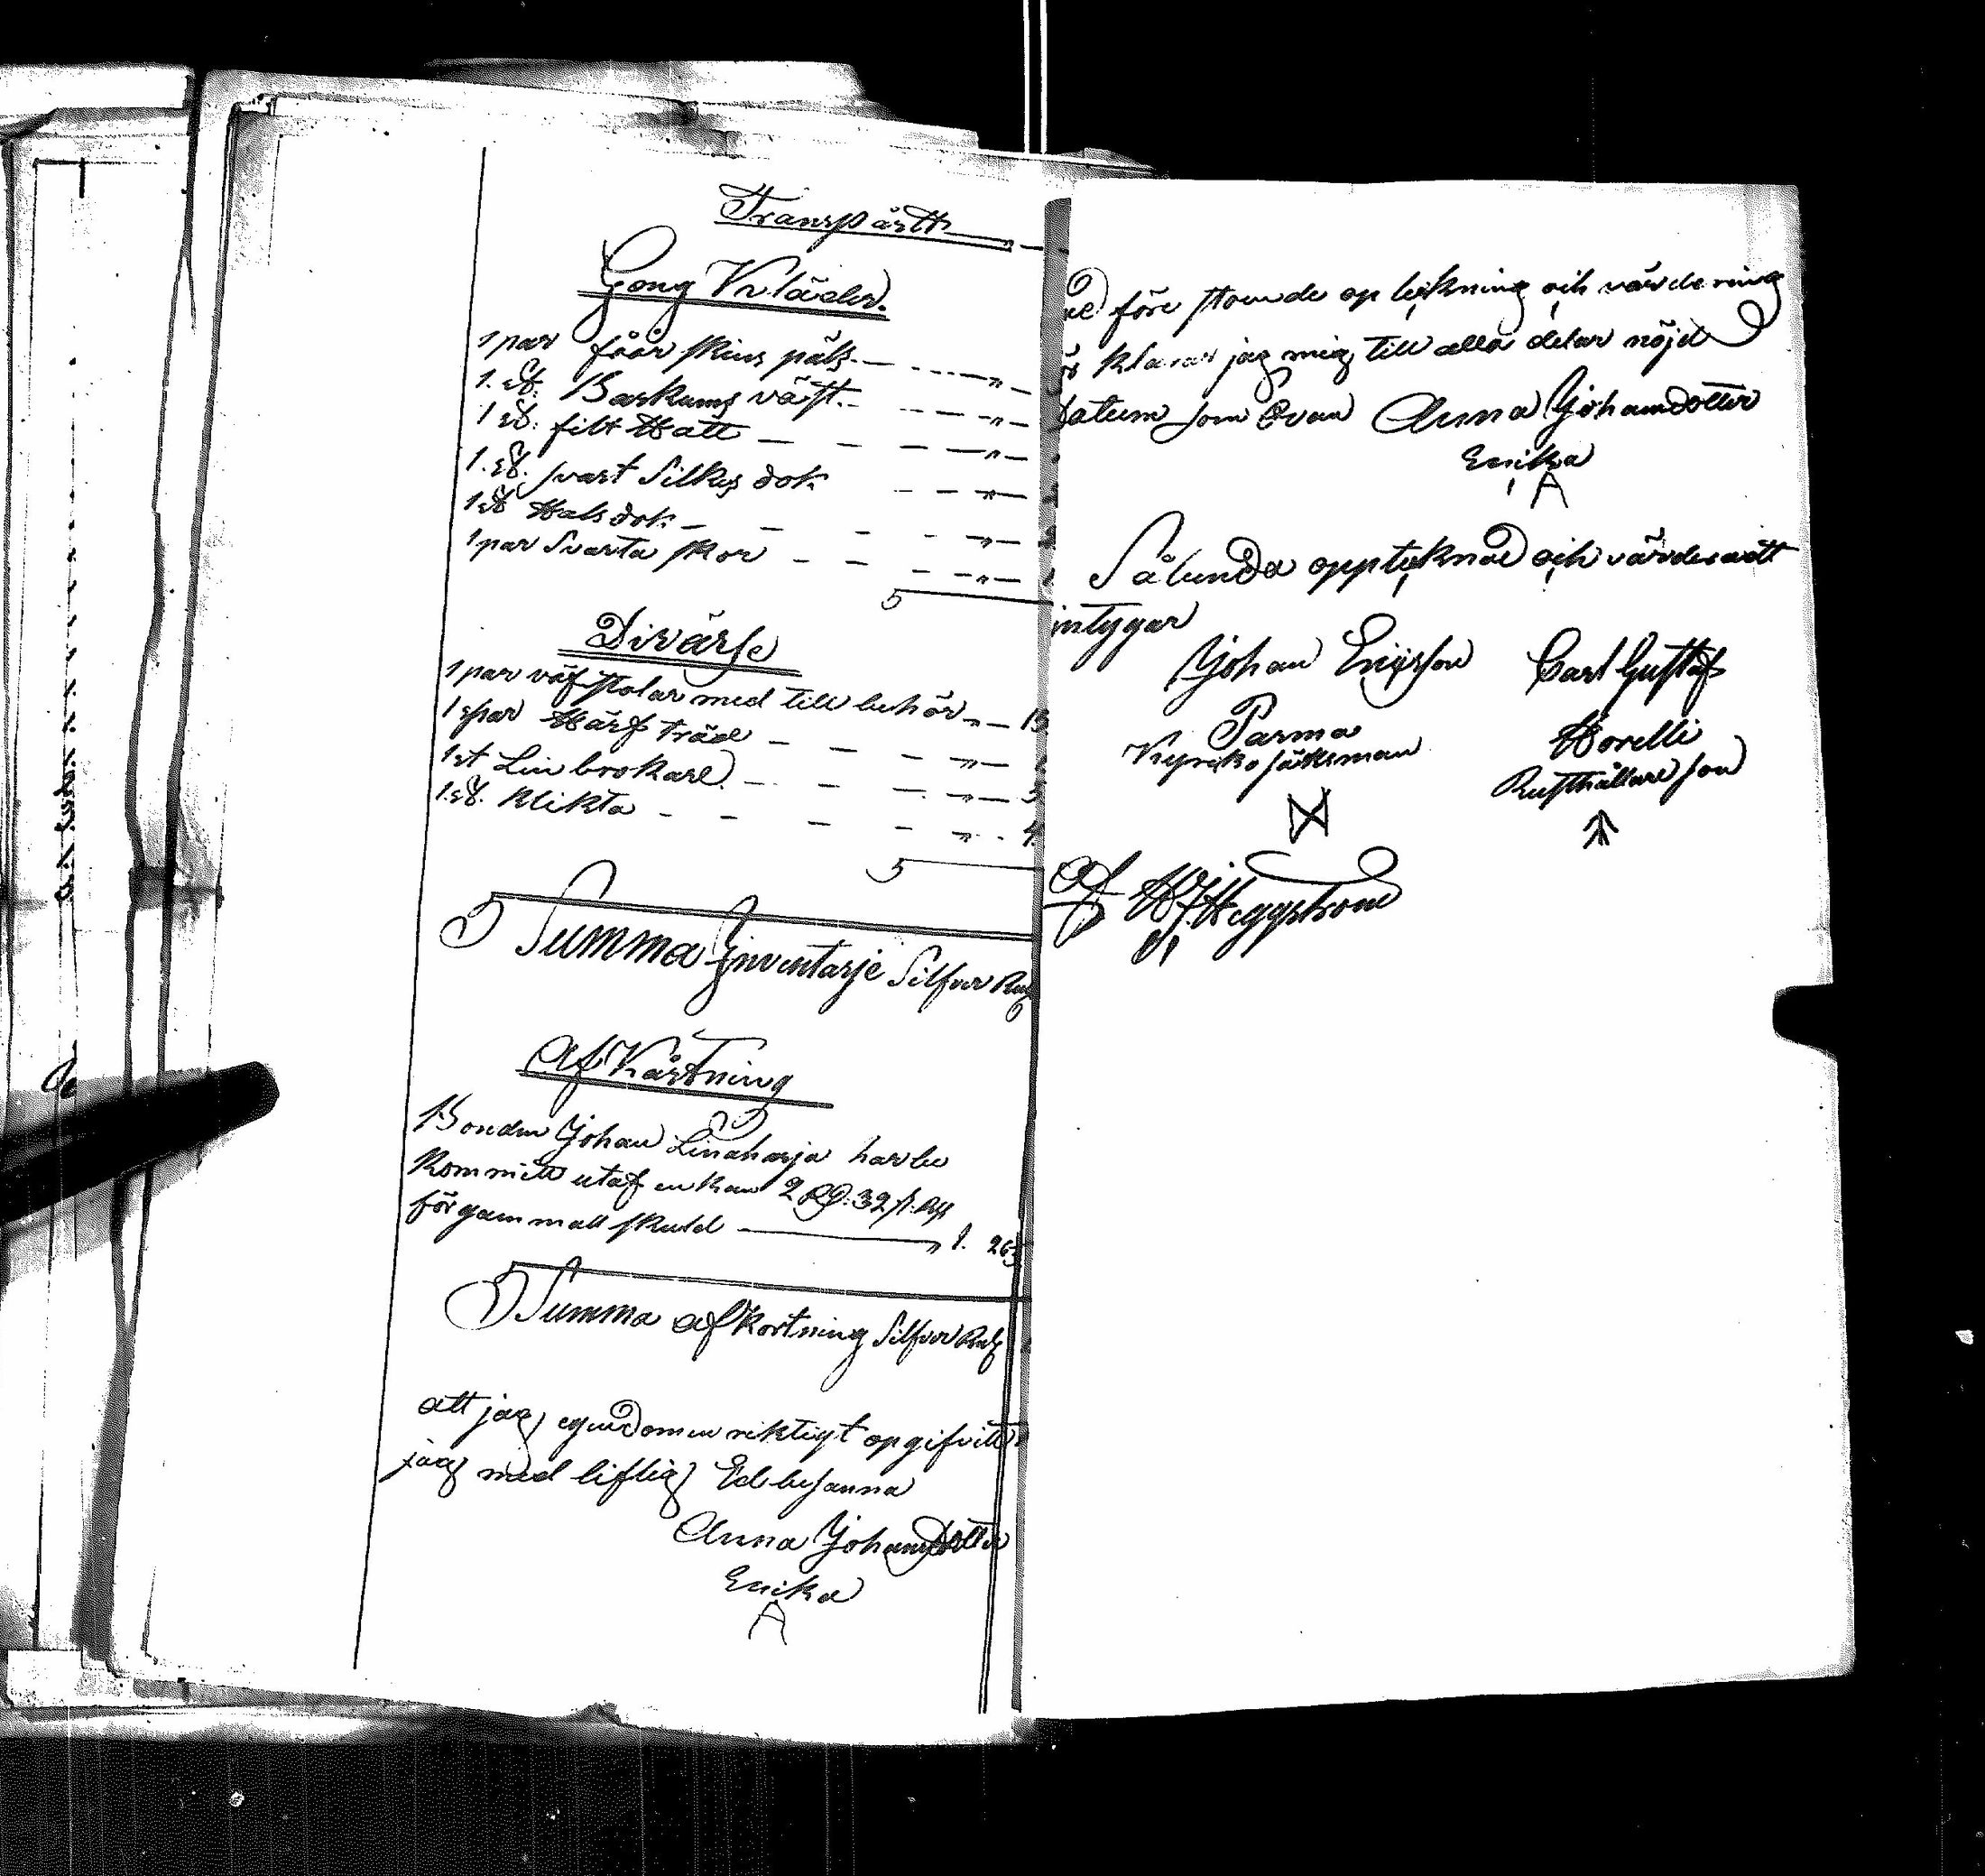 Transpårtt
Gong Kläder.
1 par fåår skins päls
1. st. Barkums väst.
1 st. filt Hatt
1. st. svart Silkes dok
1 st Hals dok
1 par Svarta skor
Divärse
1 par väfstolar med till behör
1 par Härf träd
1 st Lin brokare
1. st. klikta
Summa Jnventarje Silfver Rub
Af Kårtning
Bonden Johan Linaharja har be
kommitt utaf enkan 2 Rd: 32 s.
för gammall skuld
Summa afkortning Silfver Rub
att jag egendomen riktigt opgifvitt
jag med liflig Ed besanna
Anna Johansdotter
Enika
A
före stoende op tekning och värdering
klarar jag mig till alla delar nöjd
Datum som Ovan Anna Johansdotter
Enika
A
Sålunda oppteknad och värderatt
intygar
Johan Ericsson Carl Gustaf
Parma Horelli
Kyrcko säxman Rusthållare son
Häggström